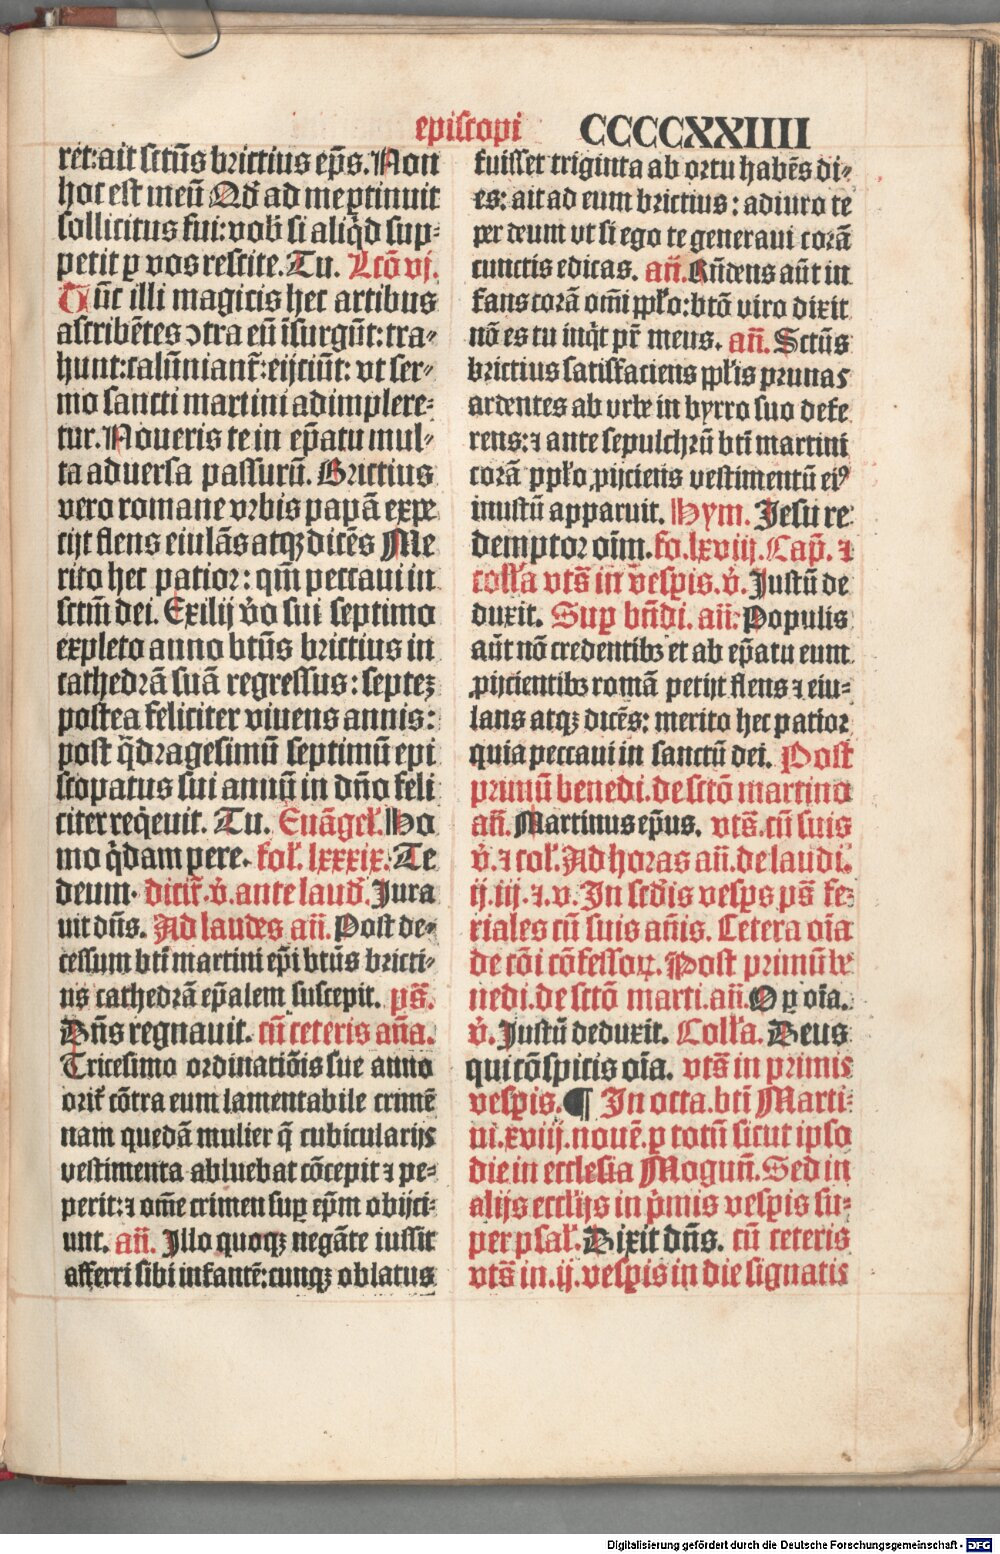 episcopi CCCCXXIIII
ret: ait sctūs brictius ep̄s. Non
hoc est meū Qd̄ ad me ꝑtinuit
sollicitus fui: vob̄ si aliq̄d sup⸗
petit p vos rescite. Tu. Lc̄o vj.
Tūc illi magicis hec artibus
ascribētes ↄtra eū īsurgūt: tra⸗
hunt: calūniant᷑: eijciūt: vt ser⸗
mo sancti martini adimplere⸗
tur. Noueris te in ep̄atu mul⸗
ta aduersa passurū. Brictius
vero romane vrbis papā expe
tijt flens eiulās atqꝫ dicēs Me
rito hec patior: qm̄ peccaui in
sctm̄ dei. Exilij v̄o sui septimo
expleto anno btūs brictius in
cathedrā suā regressus: septeꝫ
postea feliciter viuens annis:
post q̄dragesimū septimū epi
scopatus sui annū in dn̄o feli
citer req̄euit. Tu. Euāgeł. Ho
mo q̄dam pere. foł. lxxxix. Te
deum. dicit᷑. v̄. ante laud̄. Jura
uit dn̄s. Ad laudes an̄. Post de⸗
cessum btī martini ep̄i btūs bricti⸗
us cathedrā ep̄alem suscepit. ps̄.
Dn̄s regnauit. cū ceteris an̄a.
Tricesimo ordinatiōis sue anno
orit᷑ cōtra eum lamentabile crimē
nam quedā mulier q̄ cubicularijs
vestimenta abluebat cōcepit ⁊ pe⸗
perit: ⁊ om̄e crimen suꝑ ep̄m obijci⸗
unt. an̄. Illo quoqꝫ negāte iussit
afferri sibi infantē: cunqꝫ oblatus
fuisset triginta ab ortu habēs di⸗
es: ait ad eum brictius: adiuro te
per deum vt si ego te generaui corā
cunctis edicas. an̄. Rn̄dens aūt in
fans corā om̄i ppło: btō viro dixit
nō es tu inq̄t pr̄ meus. an̄. Sctūs
brictius satisfaciens ppłis prunas
ardentes ab vrbe in byrro suo defe
rens: ⁊ ante sepulchrū btī martini
corā ppło ꝓijciens vestimentū eiꝰ
inustū apparuit. Hym. Jesu re
demptor oīm. fo. lxviij. Cap̄. ⁊
colła vts̄ in vesꝑis. v̄. Justū de
duxit. Suꝑ bn̄di. an̄. Populis
aūt nō credentibꝫ et ab ep̄atu eum
ꝓijcientibꝫ romā petijt flens ⁊ eiu⸗
lans atqꝫ dicēs: merito hec patior
quia peccaui in sanctū dei. Post
primū benedi. de sctō martino
an̄. Martinus ep̄us. vts̄. cū suis
v̄. ⁊ coł. Ad horas an̄. de laudi.
ij. iij. ⁊. v. In sed̄is vesꝑs ps̄ fe⸗
riales cū suis an̄is. Cetera oīa
de cōi cōfessoꝝ. Post primū be
nedi. de sctō marti. an̄. O ꝑ oīa.
v̄. Justū deduxit. Colła. Deus
qui cōspicis oīa. vts̄ in primis
vesꝑis. ¶ In octa. btī Marti⸗
ni. xviij. nouē. p totū sicut ipso
die in ecclesia Mogun̄. Sed in
alijs eccłijs in p̄mis vesꝑis su⸗
per psał. Dixit dn̄s. cū ceteris
vts̄ in. ij. vesꝑis in die signatis
Digitalisierung gefördert durch die Deutsche Forschungsgemeinschaft - DFG